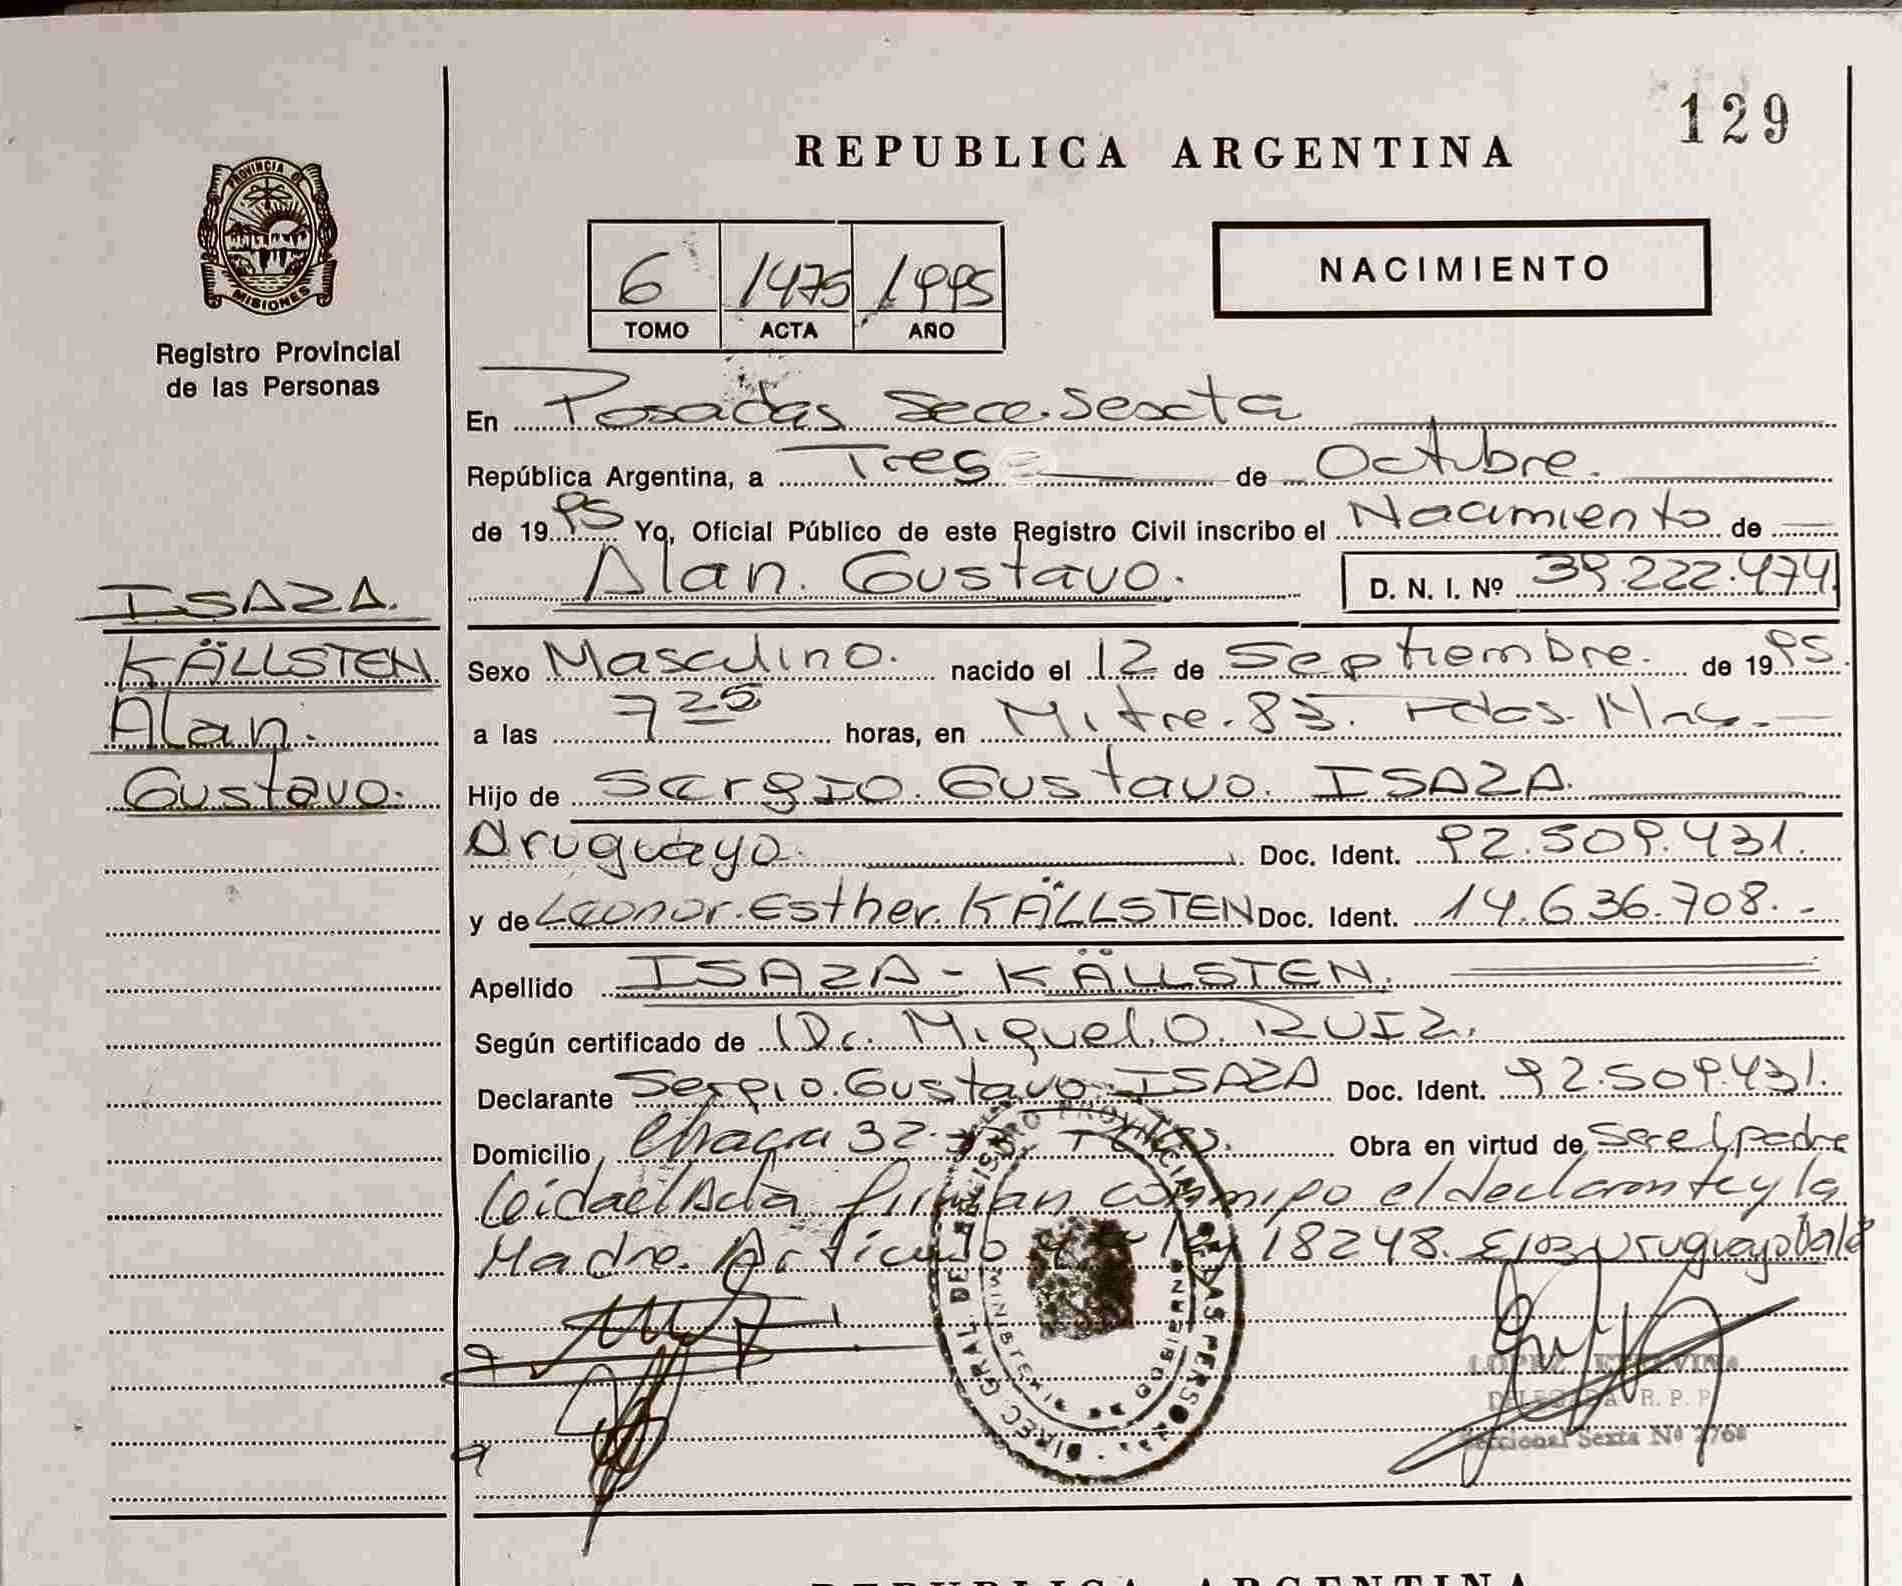 129
REPUBLICA ARGENTINA
PROVINCIA DE
MISIONES
Registro Provincial
de las Personas
6 1475 1995
TOMO ACTA AÑO
NACIMIENTO
En Posadas Secc. Sexta
República Argentina, a Tres de Octubre.
de 1995 Yo, Oficial Público de este Registro Civil inscribo el Nacimiento de
Alan. Gustavo. D. N. I. Nº 39.222.474
ISAZA.
KÄLLSTEN
Alan.
Gustavo.
Sexo Masculino. nacido el 12 de Septiembre. de 1995.
a las 7 25 horas, en Mitre. 83. Pdas. Mnes.
Hijo de Sergio. Gustavo. ISAZA.
Uruguayo. Doc. Ident. 92.509.431.
y de Leonor. Esther. KÄLLSTEN Doc. Ident. 14.636.708.
Apellido ISAZA - KÄLLSTEN.
Según certificado de Dr. Miguel. O. RUIZ.
Declarante Sergio. Gustavo. ISAZA Doc. Ident. 92.509.431.
Domicilio Chacra 32. Obra en virtud de Ser el padre
leida el Acta firman conmigo el declarante y la
Madre. Articulo ley 18248. Uruguayo Vale
DIREC. GRAL. DEL REGISTRO PROVINCIAL DE LAS PERSONAS
MINISTERIO DE GOBIERNO
LOPEZ, ETELVINA
DELEGADA R. P. P.
Seccional Sexta Nº 2768
REPUBLICA ARGENTINA